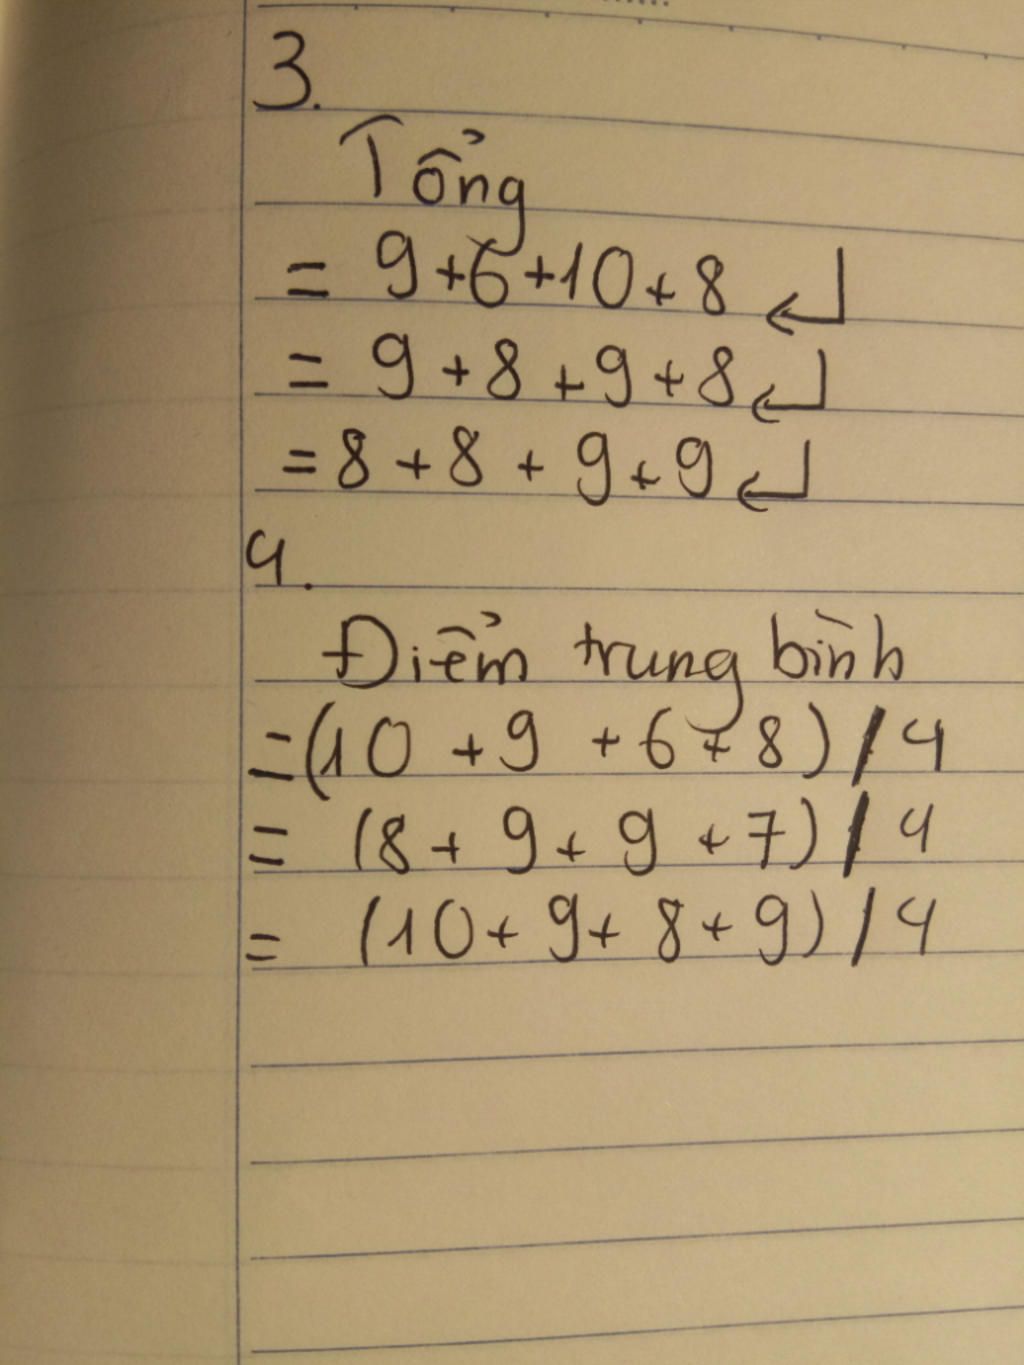 3.
Tổng
= 9+6+10+8 ↵
= 9+8+9+8 ↵
= 8+8+9+9 ↵
4.
Điểm trung bình
= (10 + 9 + 6 + 8) / 4
= (8 + 9 + 9 + 7) / 4
= (10 + 9 + 8 + 9) / 4